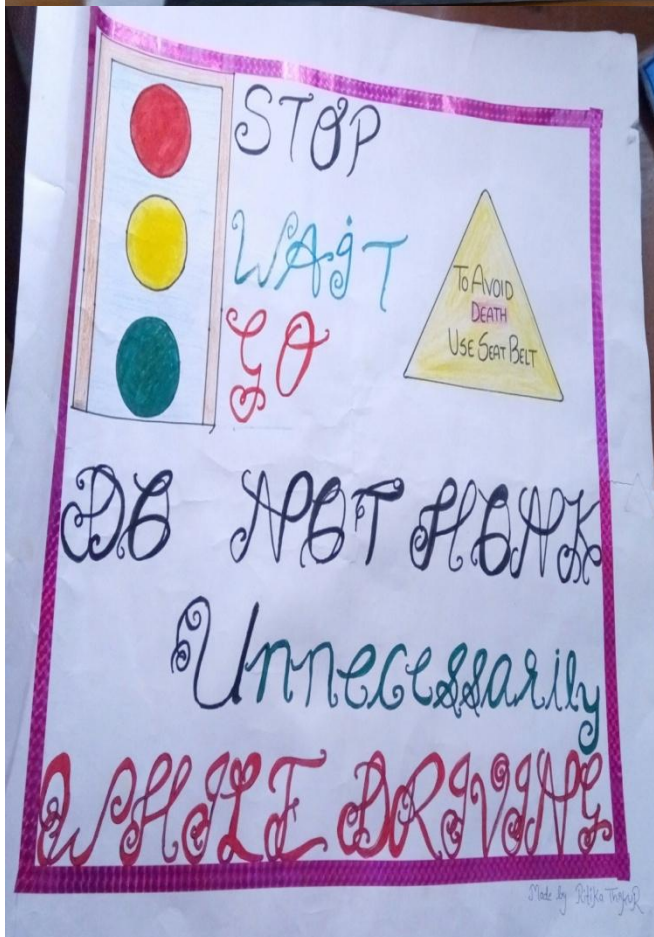 STOP
WAIT
GO
To AVOID
DEATH
USE SEAT BELT
DO NOT HONK
Unnecessarily
WHILE DRIVING
Made by Ritika